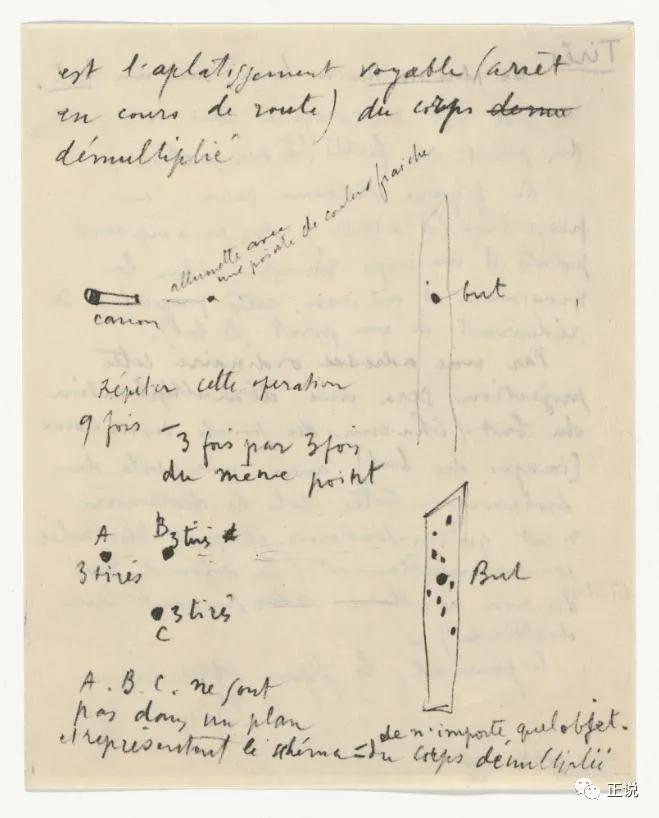 est l'aplatissement voyable (arrêt
en cours de route) du corps demu
démultiplié
allumette avec
une pointe de couleur fraîche
canon
but
Répéter cette opération
9 fois – 3 fois par 3 fois
du même point
A
3 tirés
B 3 tirs
C 3 tirés
But
A. B. C. ne sont
pas dans un plan
et représentent le schéma = du corps démultiplié
de n'importe quel objet.
正说